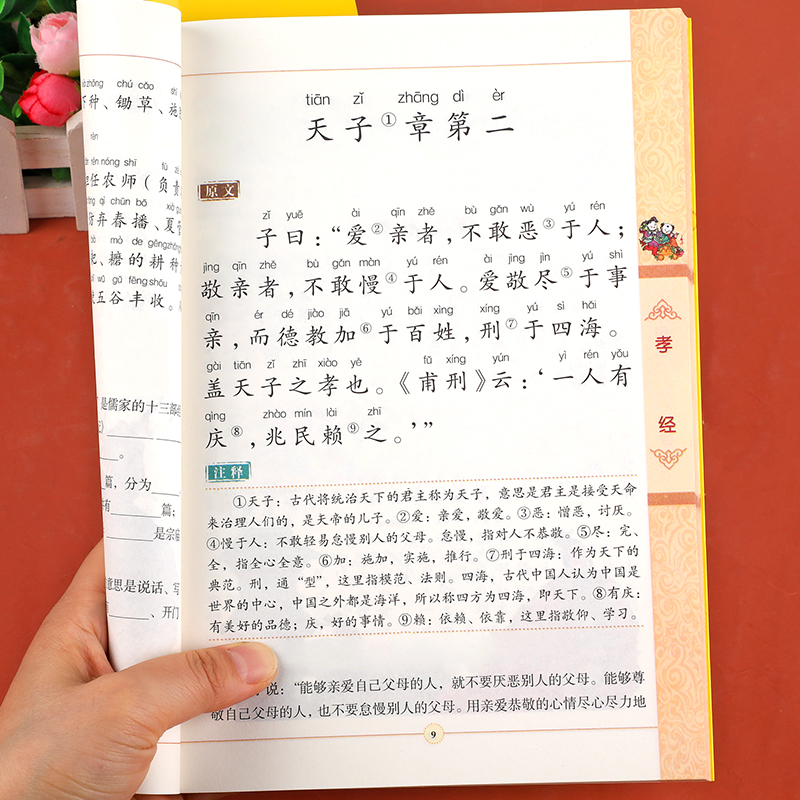 zhǒng chú cǎo shī
种、锄草、施
rén nóng shī fù zé
担任农师（负责
qì chūn bō xià
弃春播、夏管
mò de gēngzhǒng
糖的耕种
wǔ gǔ fēng shōu
五谷丰收。
是儒家的十三部经
篇，分为
篇；
是宗庙
意思是说话、写
、开门
tiān zǐ zhāng dì èr
天子①章第二
原文
zǐ yuē ài qīn zhě bù gǎn wù yú rén
子曰：“爱②亲者，不敢恶③于人；
jìng qīn zhě bù gǎn màn yú rén ài jìng jìn yú shì
敬亲者，不敢慢④于人。爱敬尽⑤于事
qīn ér dé jiào jiā yú bǎi xìng xíng yú sì hǎi
亲，而德教加⑥于百姓，刑⑦于四海。
gài tiān zǐ zhī xiào yě fǔ xíng yún yì rén yǒu
盖天子之孝也。《甫刑》云：‘一人有
qìng zhào mín lài zhī
庆⑧，兆民赖⑨之。’”
注释
①天子：古代将统治天下的君主称为天子，意思是君主是接受天命
来治理人们的，是天帝的儿子。②爱：亲爱，敬爱。③恶：憎恶，讨厌。
④慢于人：不敢轻易怠慢别人的父母。怠慢，指对人不恭敬。⑤尽：完、
全，指全心全意。⑥加：施加，实施，推行。⑦刑于四海：作为天下的
典范。刑，通“型”，这里指模范、法则。四海，古代中国人认为中国是
世界的中心，中国之外都是海洋，所以称四方为四海，即天下。⑧有庆：
有美好的品德；庆，好的事情。⑨赖：依赖、依靠，这里指敬仰、学习。
说：“能够亲爱自己父母的人，就不要厌恶别人的父母。能够尊
敬自己父母的人，也不要怠慢别人的父母。用亲爱恭敬的心情尽心尽力地
9
孝
经